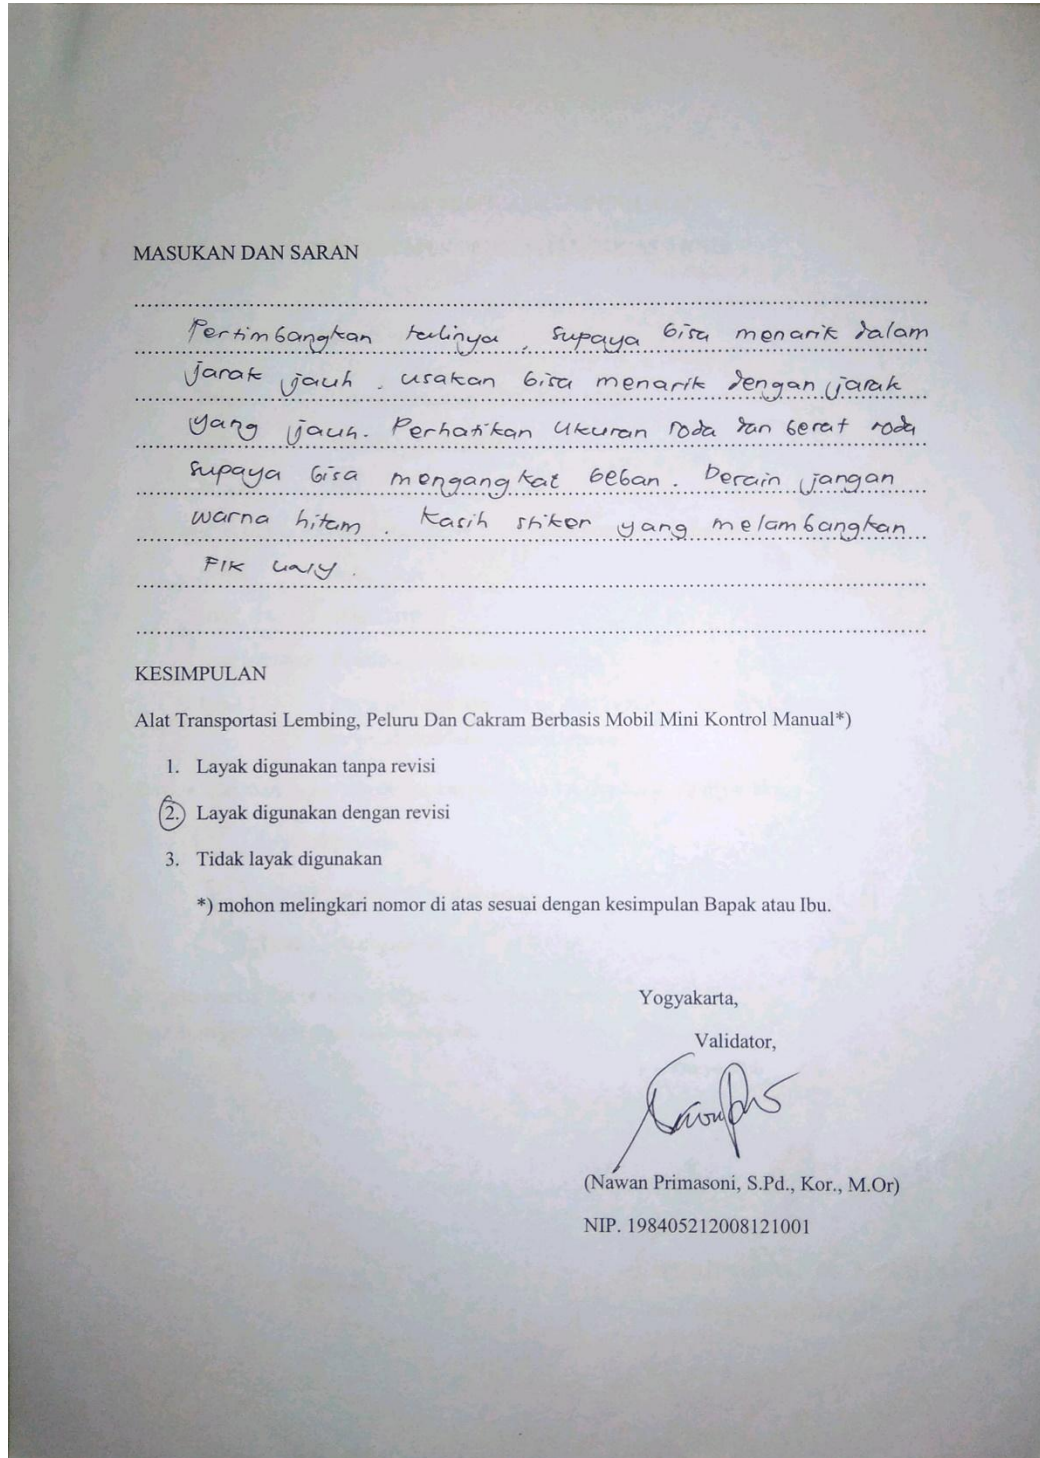 MASUKAN DAN SARAN
Pertimbangkan talinya, supaya bisa menarik dalam
jarak jauh. usakan bisa menarik dengan jarak
yang jauh. Perhatikan ukuran roda dan berat roda
supaya bisa mengangkat beban. Desain jangan
warna hitam. Kasih stiker yang melambangkan
FIK UNY.
KESIMPULAN
Alat Transportasi Lembing, Peluru Dan Cakram Berbasis Mobil Mini Kontrol Manual*)
1. Layak digunakan tanpa revisi
2. Layak digunakan dengan revisi
3. Tidak layak digunakan
*) mohon melingkari nomor di atas sesuai dengan kesimpulan Bapak atau Ibu.
Yogyakarta,
Validator,
(Nawan Primasoni, S.Pd., Kor., M.Or)
NIP. 198405212008121001